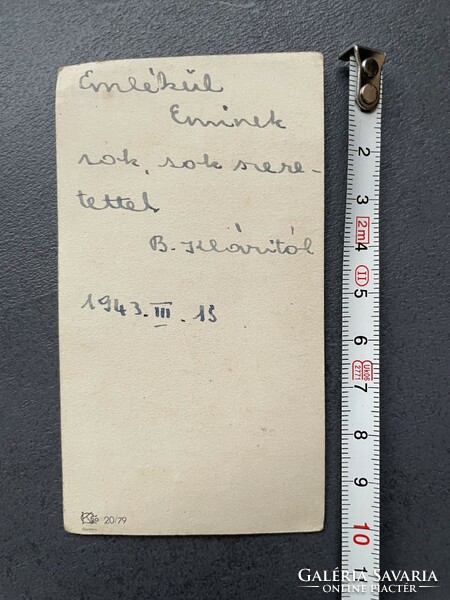 Emlékül
Eminek
sok, sok szere-
tettel
B. Kláritól
1943. III. 13
20/79
2
3
2m
4
II
5
6
7
8
9
10
1
GALÉRIA SAVARIA
ONLINE PIACTÉR